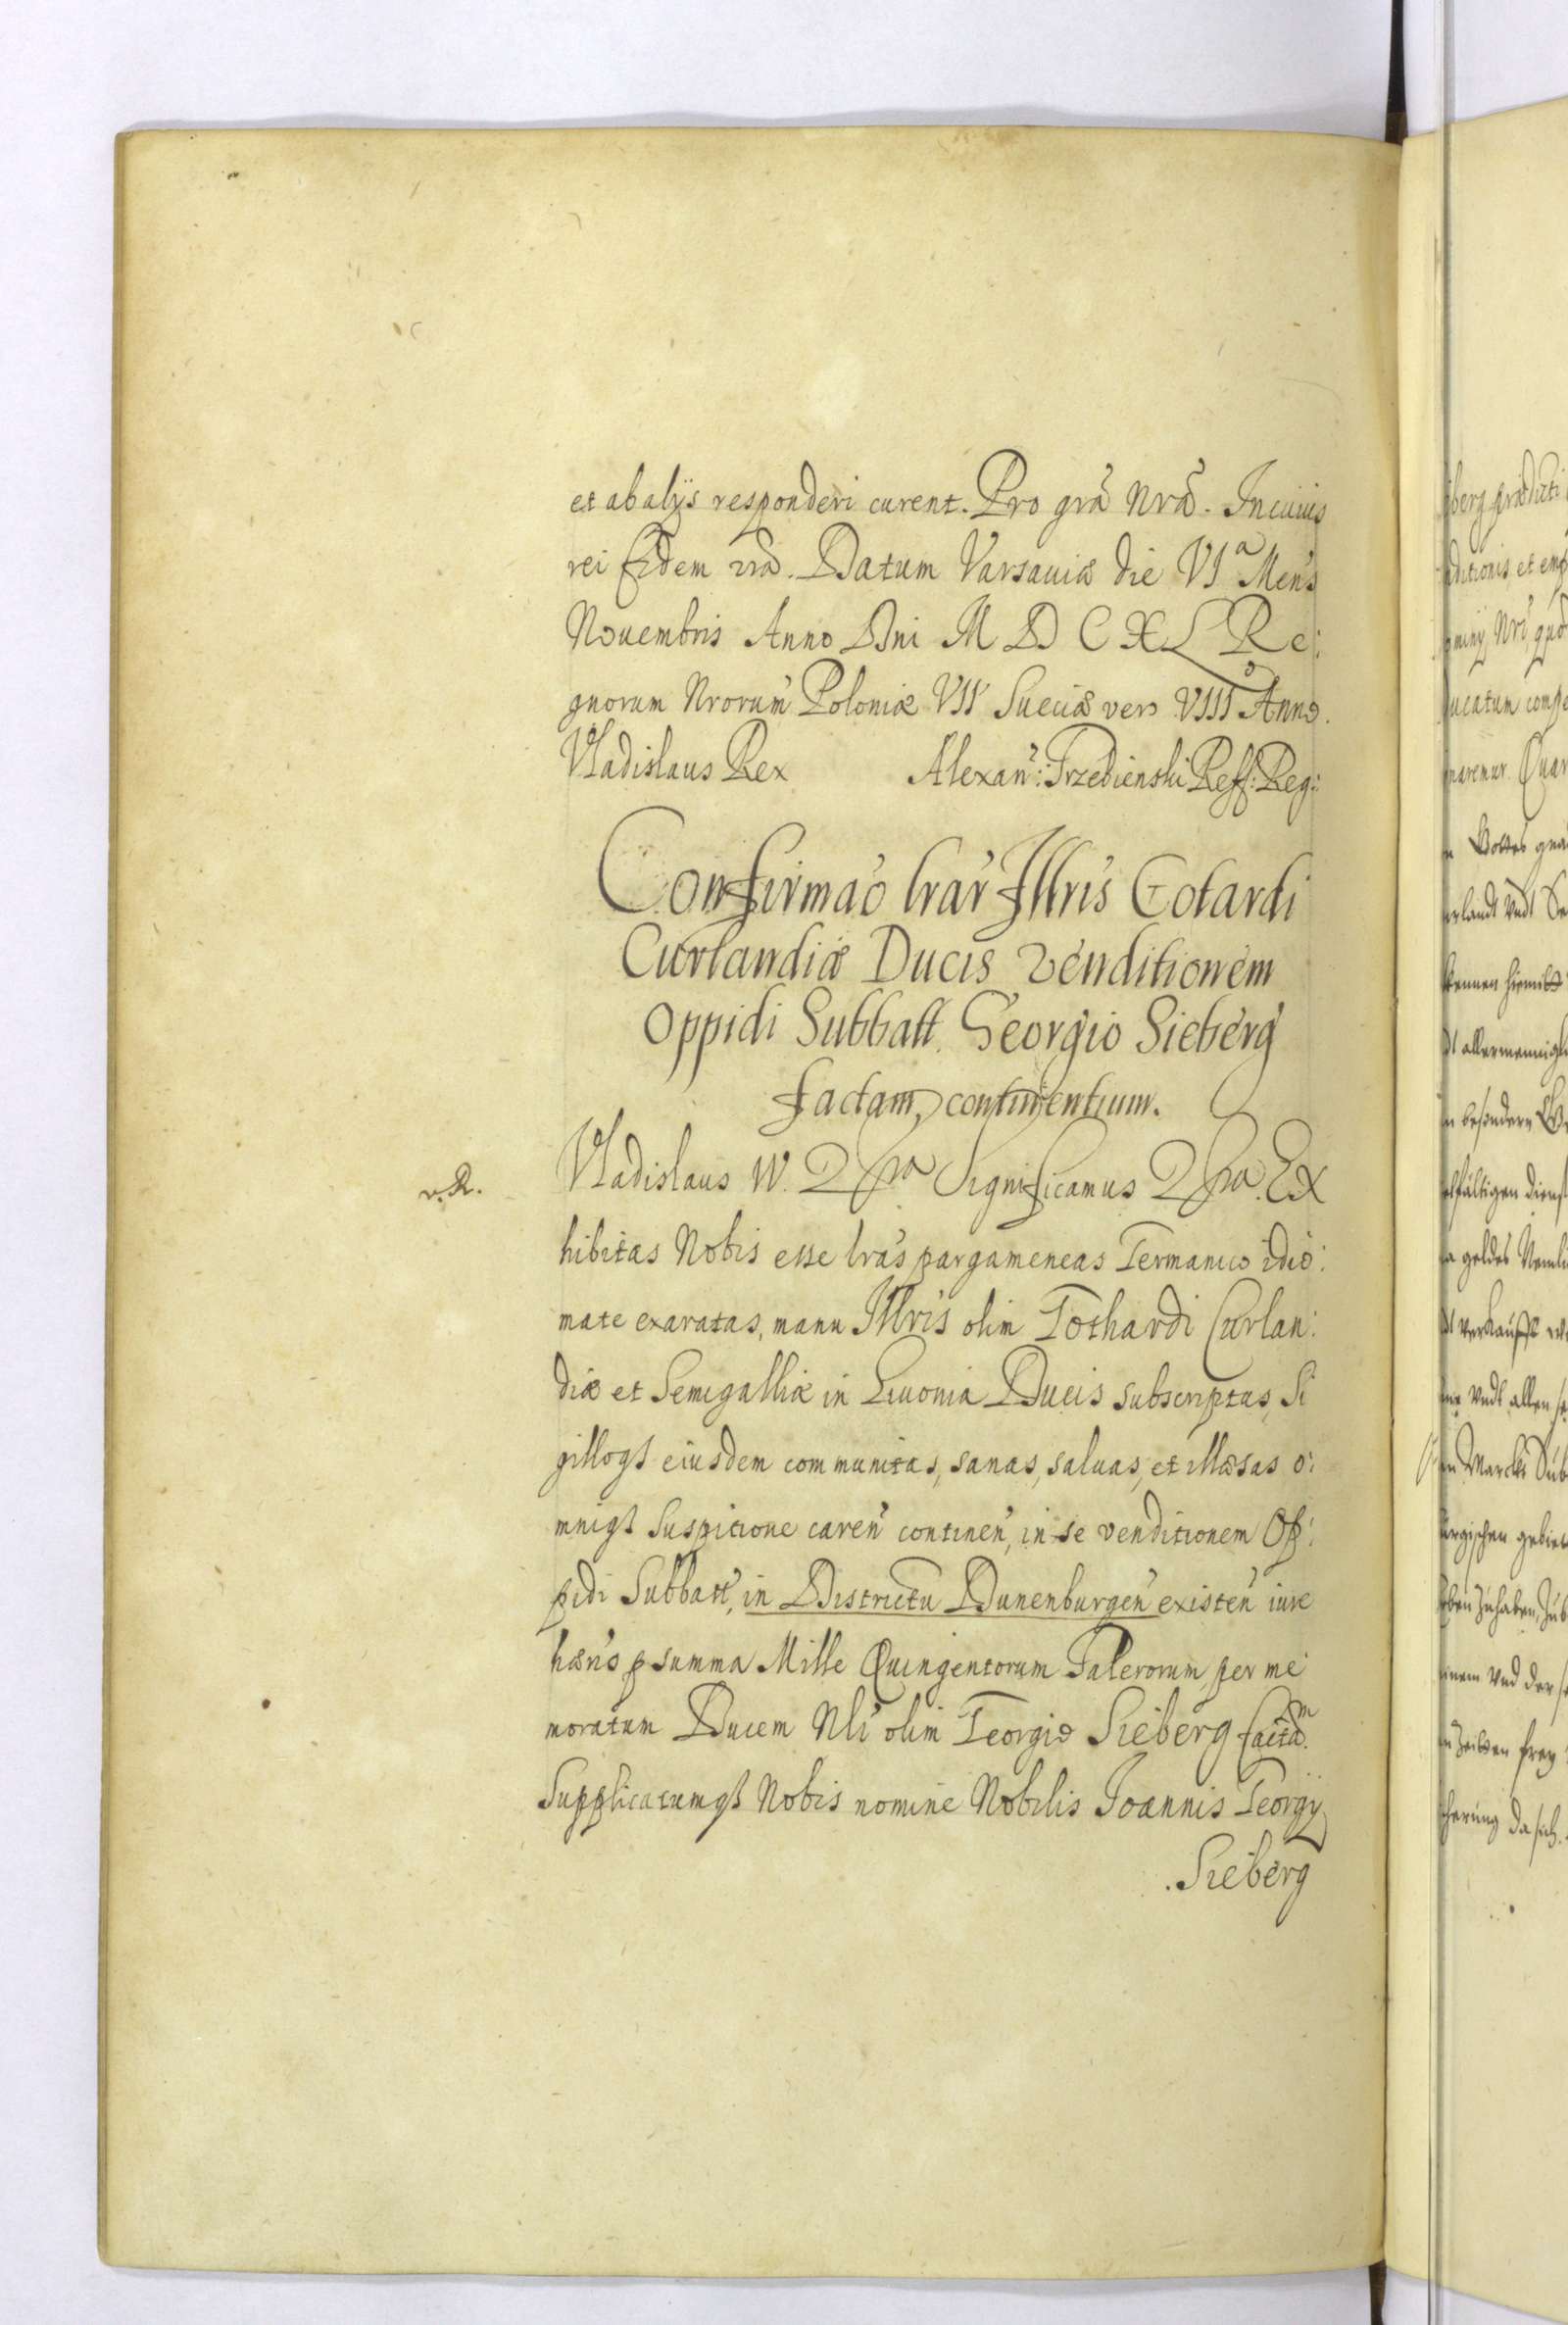 et ab alijs responderi curent. Pro grã Nrã. In cuius
rei fidem
Datum Varsauiæ die VIª Mens
Nouembris Anno Dni M D C X L Re:
gnorum Nrorum Poloniæ VII Sueciæ vero VIIIº Anno.
Vladislaus Rex Alexan: Trzebienski Reff: Reg:
Confirmao lrar Illris Gotardi
Curlandiæ Ducis venditionem
Oppidi Subbatt Georgio Sieberg
factam, continentium.
v. R.
Vladislaus IV. Significamus Ex
hibitas Nobis esse lras pargameneas Germanico idio:
mate exaratas, manu Illris olim Gothardi Curlan:
diæ et Semigalliæ in Liuonia Ducis subscriptas, Si
gilloqȝ eiusdem communitas, sanas, saluas, et illæsas o:
mniqȝ suspitione caren continen, in se venditionem Op:
pidi Subbatt, in Districtu Dunenburgen existen iure
summa Mille Quingentorum Talerorum, per me
moratum Ducem olim Georgio Sieberg factãm.
Supplicatumqȝ Nobis nomine Nobilis Joannis Georgij
Sieberg